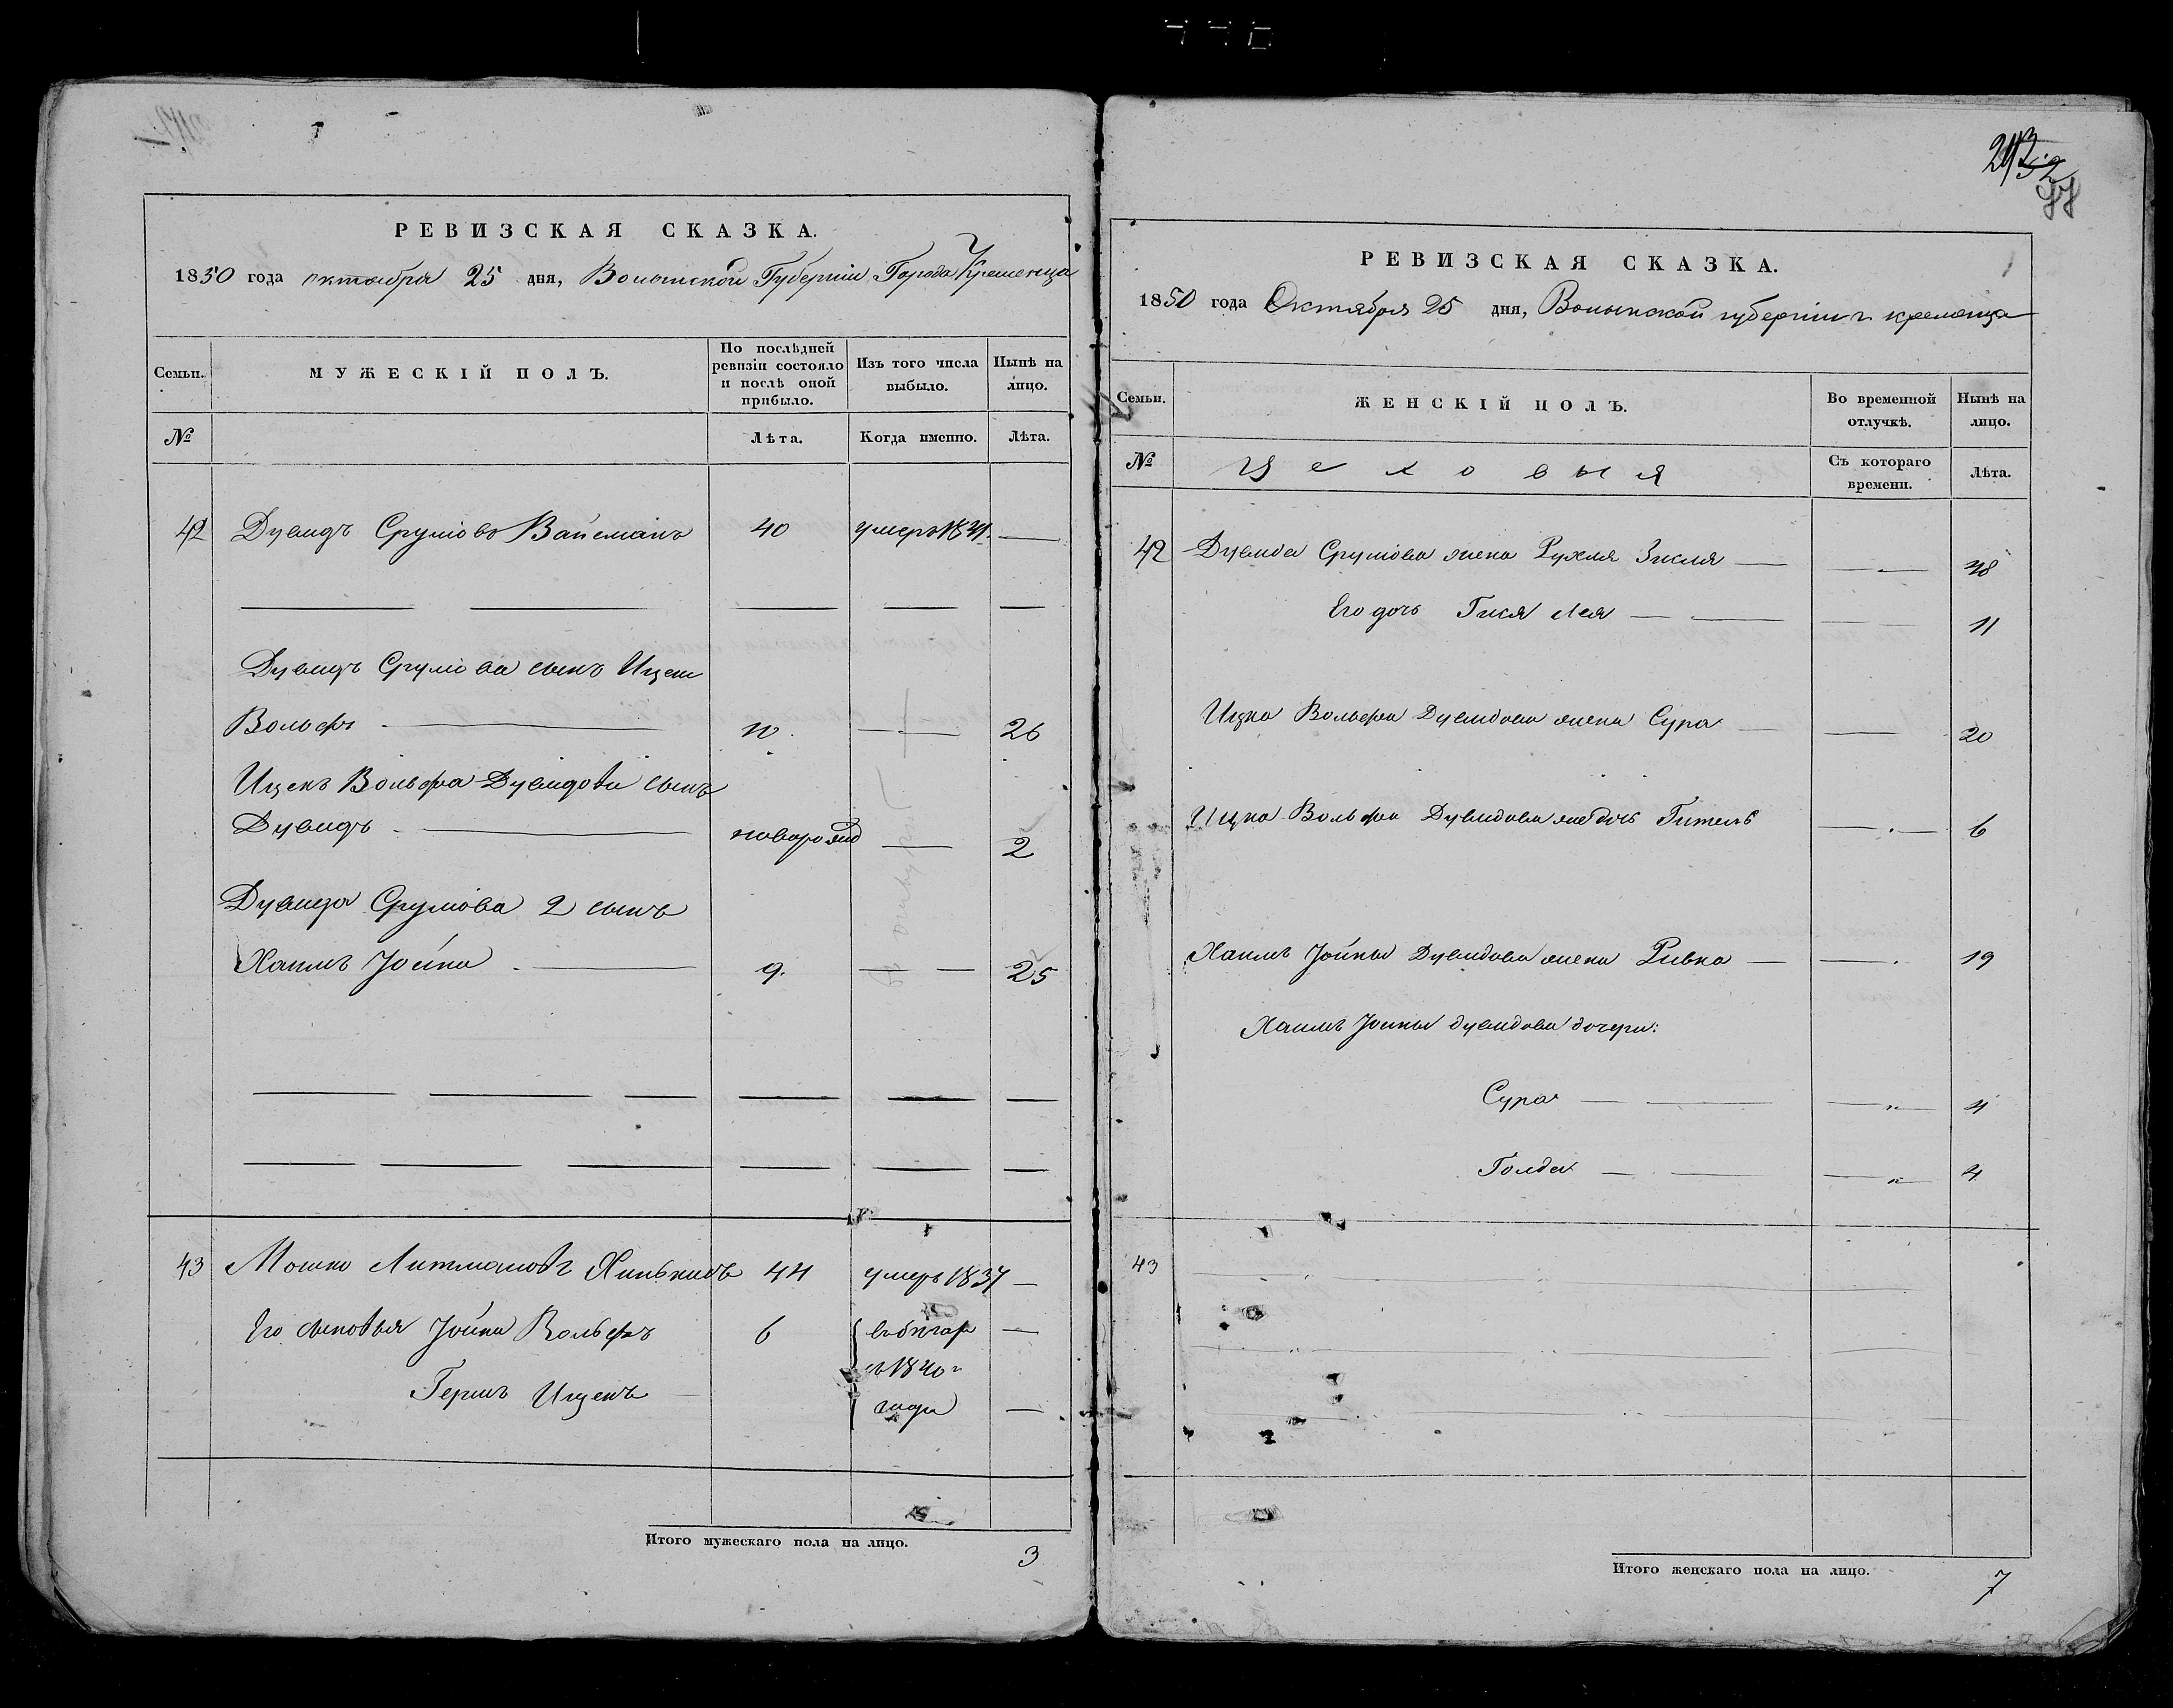 РЕВИЗСКАЯ СКАЗКА.
1850 года октября 25 дня, Волынской Губернии Города Кременца
Семьи. МУЖЕСКІЙ ПОЛЪ. По послѣдней ревизіи состояло и послѣ оной прибыло. Изъ того числа выбыло. Нынѣ на лицо.
№ Лѣта. Когда именно. Лѣта.
42 Дувидъ Сруліовъ Вайсманъ 40 умеръ —
Дувидъ Сруліова сынъ Ицекъ
Вольфъ — 10. — 26
Ицекъ Вольфа Дувидова сынъ
Дувидъ — новорожд — 2
Дувида Сруліова 2 сынъ
Хаимъ Іойна — 9. — 25
43 Мошко Литмановъ 44 умеръ 1837 —
Его сыновья Іойна Вольфъ 6 —
въ 1840 г
Гершъ Ицекъ —
Итого мужескаго пола на лицо. 3
РЕВИЗСКАЯ СКАЗКА.
1850 года Октября 25 дня, Волынской губерніи г. кременца
Семьи. ЖЕНСКІЙ ПОЛЪ. Во временной отлучкѣ. Нынѣ на лицо.
№ Цеховыя Съ котораго времени. Лѣта.
42 Дувида Сруліова жена Рухля Зисля — 38
Его дочь Гися Лея — 11
Ицка Вольфа Дувидова жена Сура — 20
Ицка Вольфа Дувидова дочь Гитель — 6
Хаимъ Іойны Дувидова жена Ривка — 19
Хаимъ Іойны дувидова дочери:
Сура — 4
Голда — 4
43
Итого женскаго пола на лицо. 7